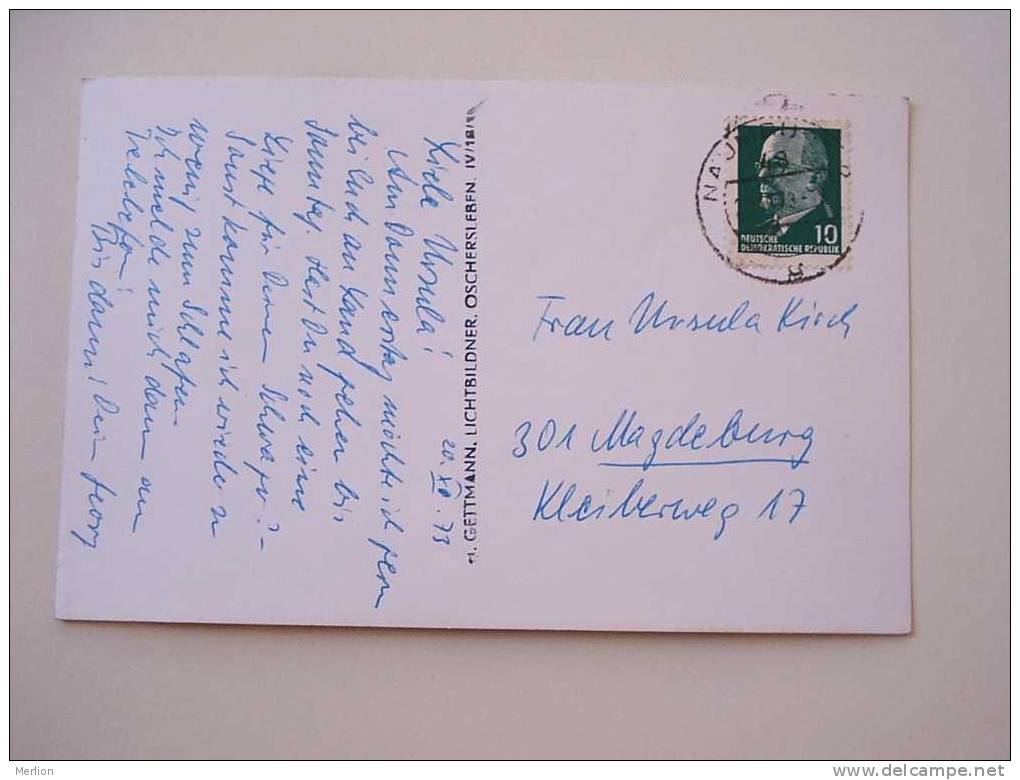 20. XI. 73
Liebe Ursula!
Am Donnerstag möchte ich gern
bei Euch an Land gehen bis
Samstag. Hast Du noch eine
Liege für Deinen Schwager? -
Sonst komme ich wieder zu
wenig zum Schlafen
Ich melde mich dann an
Telefon!
Bis dann! Dein Georg
GETTMANN, LICHTBILDNER, OSCHERSLEBEN. IV/18/
10
DEUTSCHE
DEMOKRATISCHE REPUBLIK
Frau Ursula Kirch
301 Magdeburg
Kleiberweg 17
Merlion
www.delcampe.net